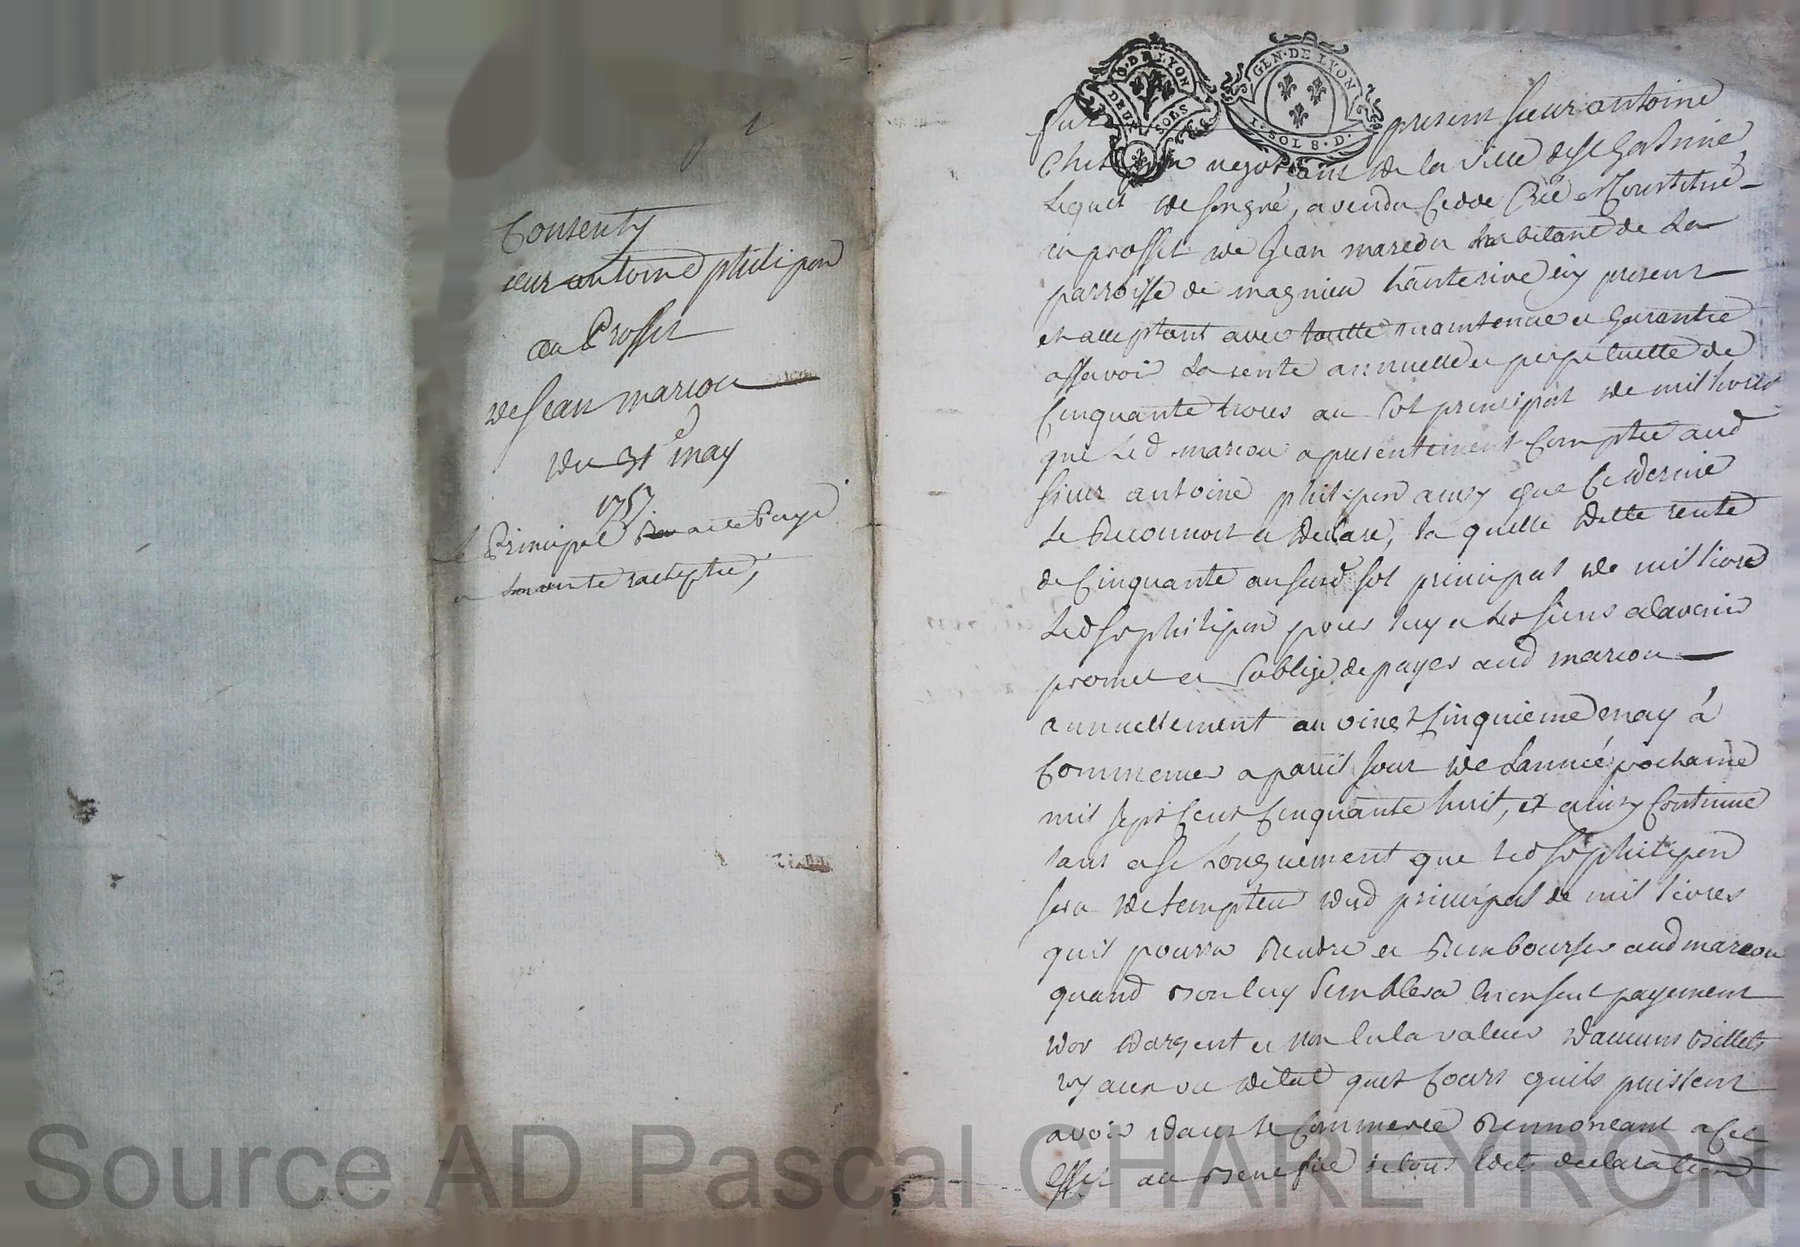 1
Contenty
sieur antoine philipon
au Proffit
de Jean marcou
du 31e may
1757
le Principal a este Payé
G. DE LYON
DEUX SOLS
GEN. DE LYON
1. SOL 8. D.
Fut present sieur antoine
negotiant de la ville de
Lequel de son gré, a vendu cedde Crée et Constitué
au proffit de Jean marcou habitant de La
parroisse de magnieu hauterive icy present
et acceptant avec toutte maintenue et Garantie
assavoir La rente annuelle et perpetuelle de
Cinquante livres au sol principal de mil livres
que Led marcou a presentement Comptée aud
sieur antoine philipon ainsy que Ce dernier
le Reconnoit et declare, la quelle ditte rente
de Cinquante au susd sol principal de mil livres
Led sr philipon pour luy et Les siens a lavenir
promet et soblige de payer aud marcou
annuellement au vingt Cinquieme may à
Commencer a pareil jour de Lannée prochaine
mil sept Cent Cinquante huit, et ainsy Continuer
tant et sy Longuement que Led sr philipon
sera detempteur dud principal de mil livres
quil pourra Rendre et Rembourser aud marcou
quand bon luy semblera en un seul payement
dor dargent et non en la valeur daucuns Billets
de tel quel Cours quils puissent
avoir dans le Commerce Renonceant a Cet
Effet au Benefice de tous Edits declarations
Source AD Pascal CHAREYRON